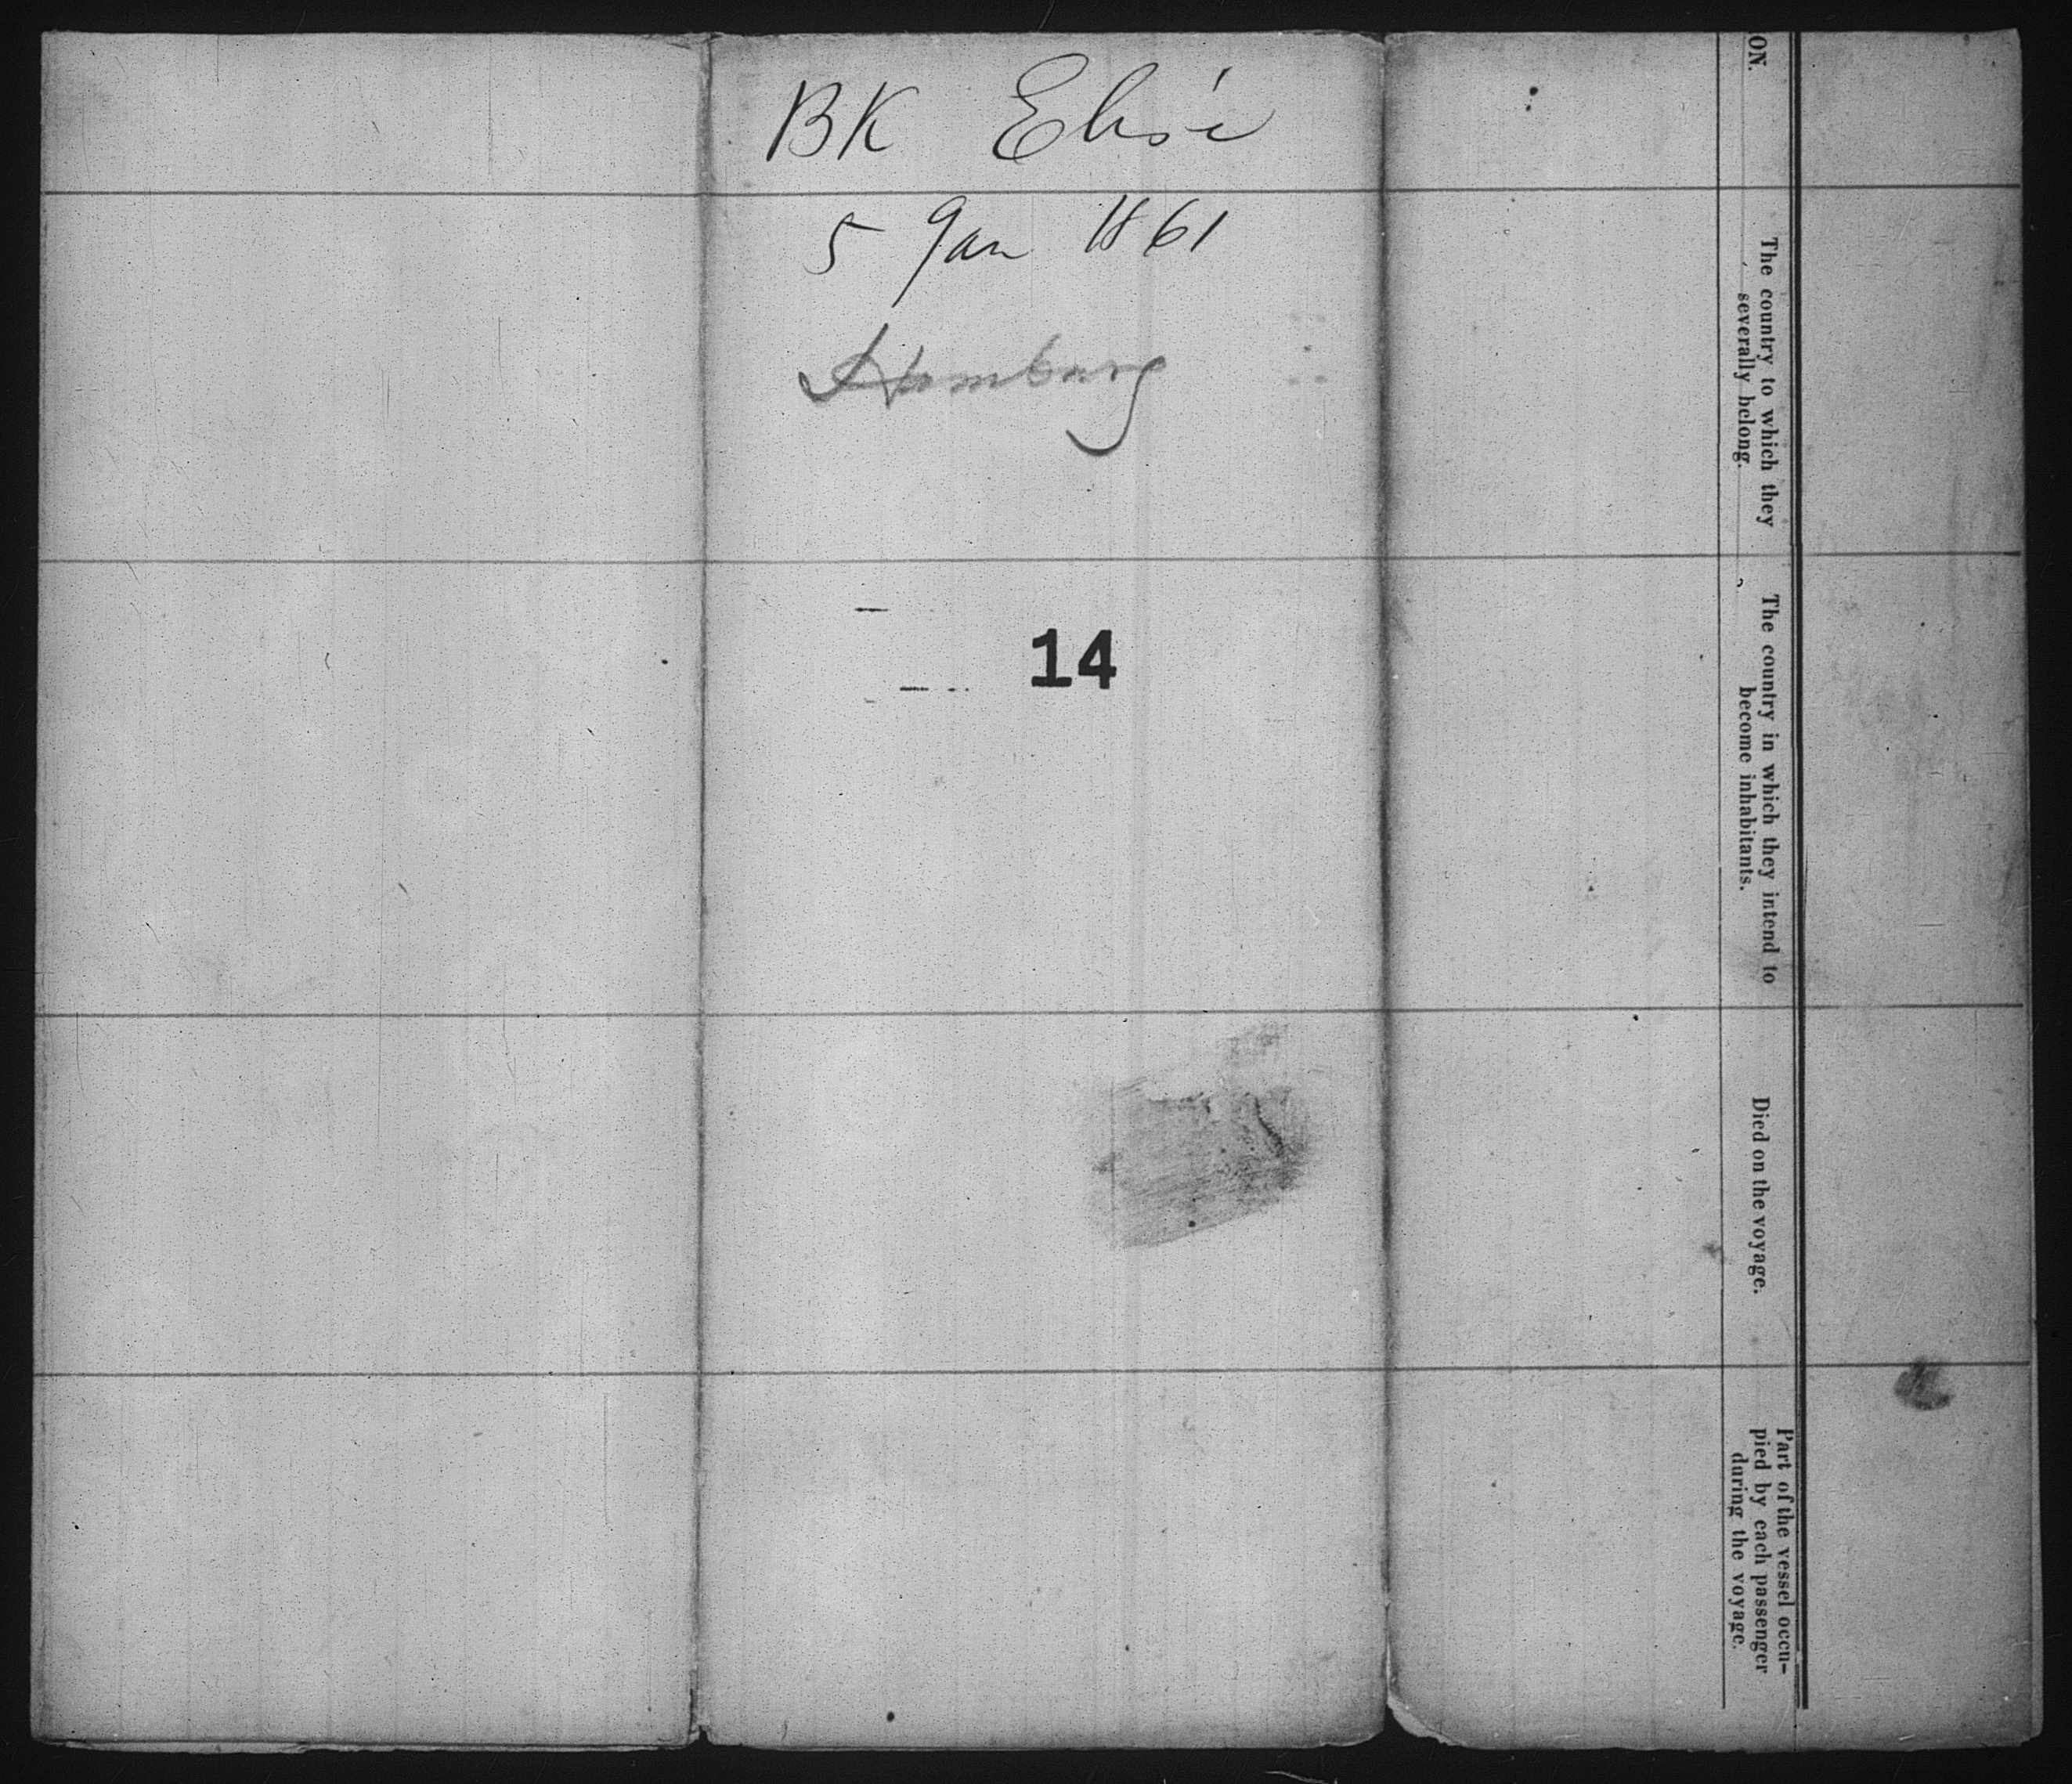 BK Elise
5 Jan 1861
Hamburg
14
ON.
The country to which they
severally belong.
The country in which they intend to
become inhabitants.
Died on the voyage.
Part of the vessel occu-
pied by each passenger
during the voyage.